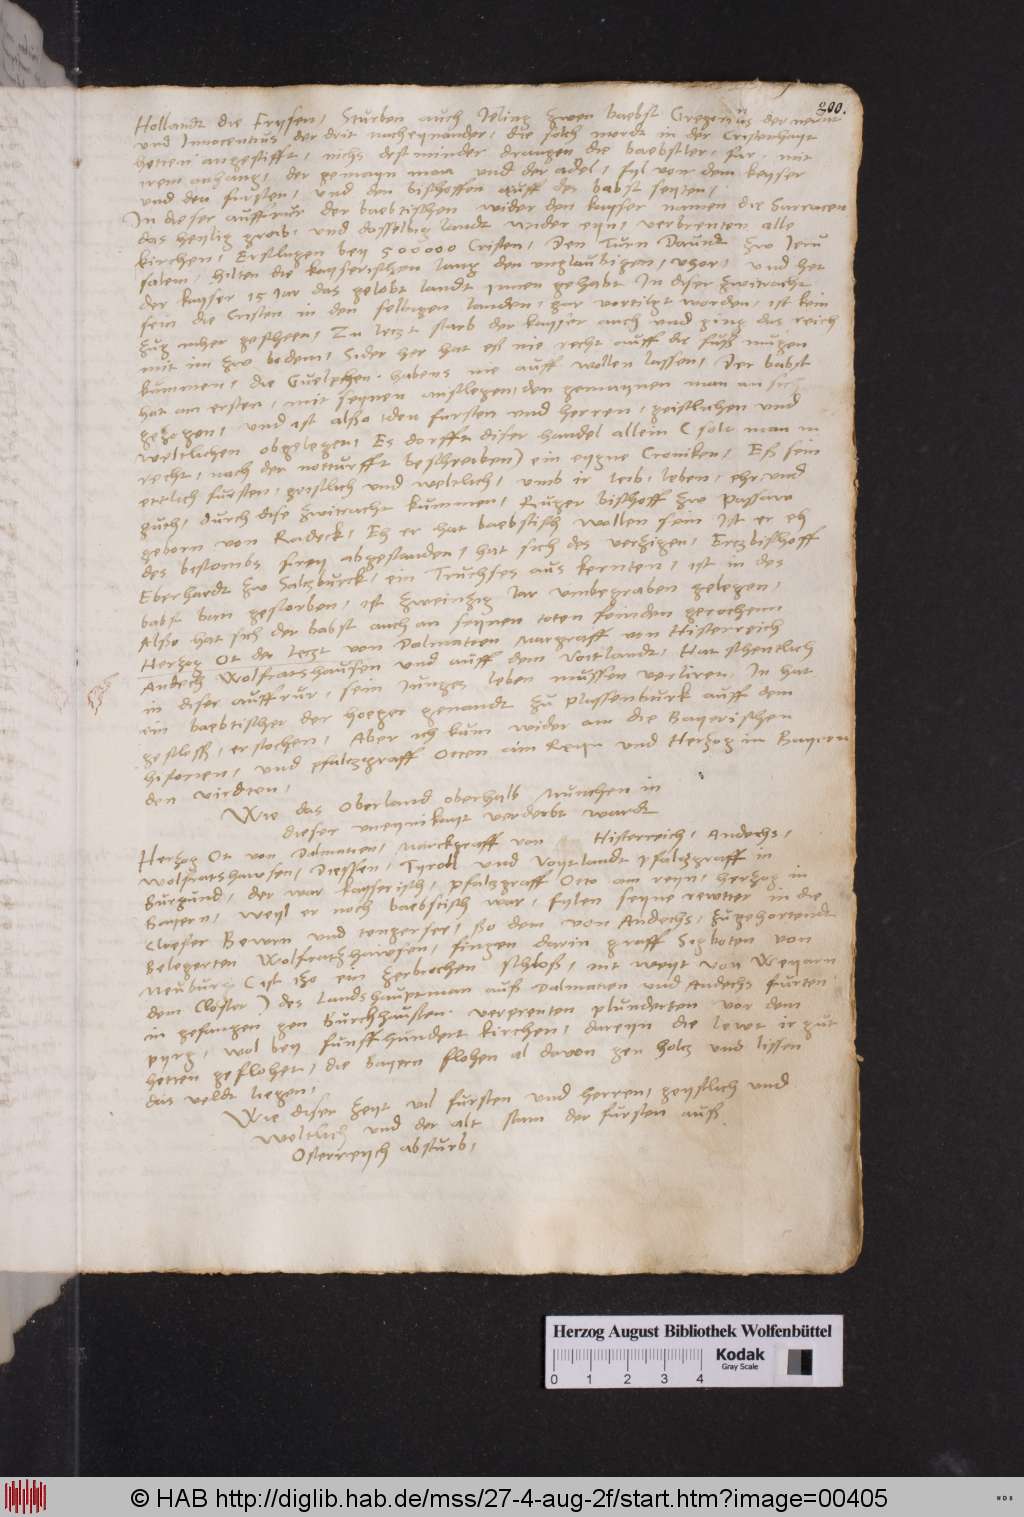 200.
Hollandt die Frysen, Sturben auch Jeling zwen baebst Gregorius der neunt
und Innocentius der drit nacheynander, die solch mordt in der Cristenhayt
hetten angestifft, nichs dest minder drangen die baebstler, für, mit
irem anhang, der gemayn man und der adel, fyl von dem keyser
und den fursten, und den bischoffen auff des babst seyten,
In dieser auffrur der baebtischen wider den kayser namen die Sarracen
das heylig grab, und dasselbig landt wider eyn, verbrenten alle
kirchen, Erschlugen bey 500000 Cristen, Den Turn Dauidt zw Jeru
salem, hilten die kayserischen lang den unglaubigen, vhor, und het
der kayser 15 Jar das gelobt landt Innen gehabt In diser zwitracht
sein die Cristen in den selbigen landen, gar vertilgt worden, ist kein
zug mher gescheen, Zu letzt starb der kayser auch und ging das reich
mit im zw bodem, Sider her hat es nie recht auff die fuß mugen
kummen, die Guelphen habens nie auff wollen lassen, Der babst
hat am ersten, mit seynen anschlegen, den gemaynen man an sich
gezogen, und ist also den fursten und herren, geistlichen und
weltlichen obgelegen, Es dorfft diser handel allein (solt man in
recht, nach der notturfft beschreiben) ein eygne Croniken, Es sein
ettlich fursten, geistlich und weltlich, umb ir leib, leben, ehr und
guth, durch dise zwitracht kummen, Ruger bischoff zw Passaw
geborn von Radeck, Eh er hat baebstisch wollen sein Ist er eh
des bestombs frey abgestanden, hat sich des verzigen, Ertzbischoff
Eberhardt zw Salzburck, ein Truchses aus kernten, ist in des
babst ban gestorben, ist zweinzig Jar unbegraben gelegen,
Also hat sich der babst auch an seynen toten feinden gerochenn
Herzog Ot der letzt von Dalmatien Margraff von Histerreich
Andechs Wolfratshausen und auff dem Voitlandt, Hat schentlich
in diser auffrur, sein Junges leben mussen verliren, In hat
ein baebtischer der hoeger genandt zu plassenburk auff dem
geschloß, erstochen, Aber ich kum wider an die Bayerischen
historien, und pfaltzgraff Otten am Reyn und Hertzog in Bayern
den virdten,
Wie das Oberland oberhalb Munchen in
dieser uneynikayt verderbt wardt
Herzog Ot von Dalmatien, Marckgraff von Histerreich, Andechs,
Wolfratshawsen, Diessen, Tyroll und Voytlandt pfaltzgraff in
Burgund, der war kayserisch, pfaltzgraff Otto am reyn, herzog in
Bayern, weyl er noch baebstisch war, fylen seyne rewtter in die
Cloester Bevern und tengersee, so dem von Andechs, zugehortendt
Belegerten Wolfratzhawsen, fingen darin graff Sigboten von
Neuburg (ist itzo ein zerbrochen schloß, nit weyt von Weyarn
dem Closter) des Landshauptman auß Dalmatien und Andechs furten
in gefangen gen Burckhausen. verprenten plunderten vor dem
pyrg, wol bey funffhundert kirchen, dareyn die lewt ir gut
hetten geflohet, die bayern flohen al davon gen holtz und lissen
das veldt liegen,
Wie diser zeyt vil fursten und herren, geystlich und
weltlich und der alt stam der fursten auß
Osterreych absturb,
Herzog August Bibliothek Wolfenbüttel
Kodak
Gray Scale
0 1 2 3 4
© HAB http://diglib.hab.de/mss/27-4-aug-2f/start.htm?image=00405